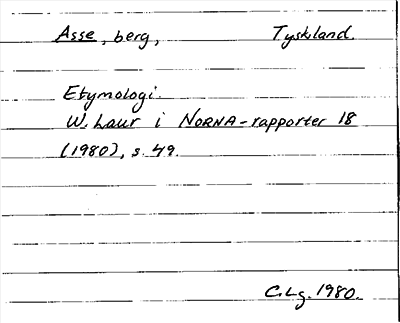 Asse, berg, Tyskland.
Etymologi.
W. Laur i NORNA-rapporter 18
(1980), s. 49.
C.Lg. 1980.